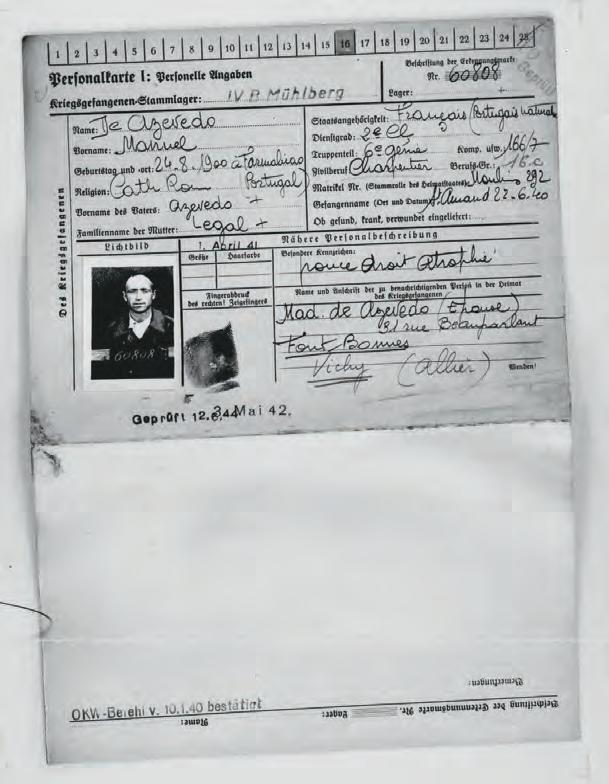 1 2 3 4 5 6 7 8 9 10 11 12 13 14 15 16 17 18 19 20 21 22 23 24 25
Geprüft
Personalkarte I: Personelle Angaben
Beschriftung der Erkennungsmarke
Nr. 60808
Kriegsgefangenen-Stammlager: IV B Mühlberg
Lager: +
Des Kriegsgefangenen
Name: De Azevedo
Vorname: Manuel
Geburtstag und -ort: 24.8.1900 à Famalicao
Religion: Cath Rom Portugal
Vorname des Vaters: Azevedo +
Familienname der Mutter: Legal +
Staatsangehörigkeit: Français (Portugais naturalisé
Dienstgrad: 2e Cl
Truppenteil: 6e génie Komp. usw.: 166/7
Zivilberuf: Charpentier Berufs-Gr.: 16.c
Matrikel Nr. (Stammrolle des Heimatstaates) Moulins 292
Gefangenname (Ort und Datum): St Amand 22.6.40
Ob gesund, krank, verwundet eingeliefert:
Lichtbild
1. April 41
Nähere Personalbeschreibung
Größe Haarfarbe
Besondere Kennzeichen:
pouce droit atrophié
Fingerabdruck
des rechten! Zeigefingers
Name und Anschrift der zu benachrichtigenden Person in der Heimat
des Kriegsgefangenen
Mad. de Azevedo (Epouse)
21 rue Beauparlant
Font Bonnes
Vichy (Allier)
Wenden!
60808
Geprüft 12.6.44
3. Mai 42.
Bemerkungen:
OKW-Befehl v. 10.1.40 bestätigt
Beschriftung der Erkennungsmarke Nr. Lager:
Name: